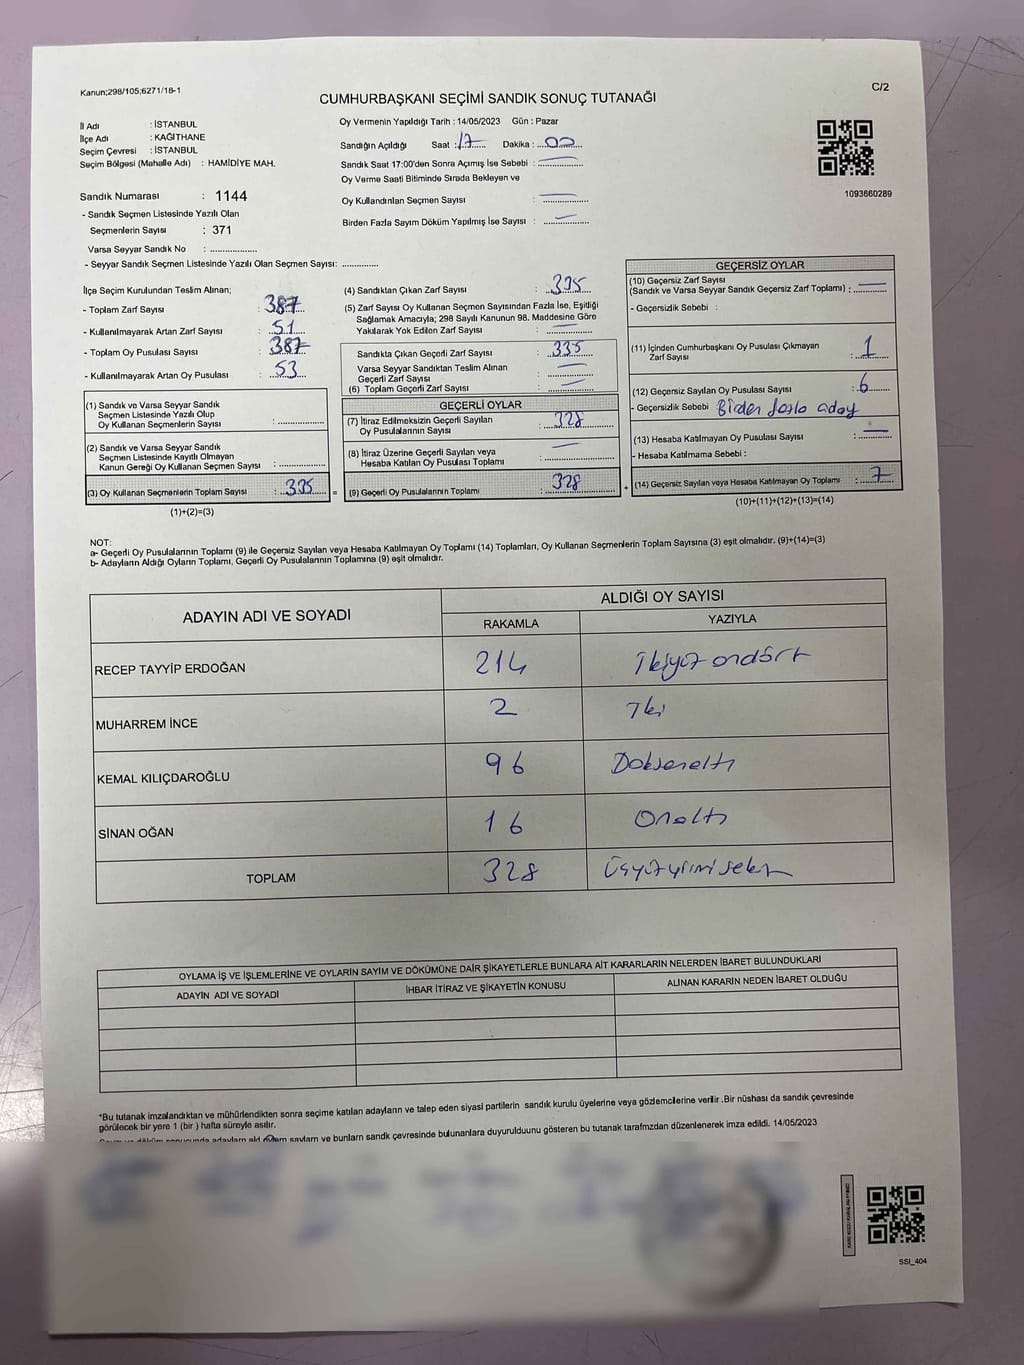 Kanun;298/105;6271/18-1
C/2
CUMHURBAŞKANI SEÇİMİ SANDIK SONUÇ TUTANAĞI
İl Adı : İSTANBUL
İlçe Adı : KAĞITHANE
Seçim Çevresi : İSTANBUL
Seçim Bölgesi (Mahalle Adı) : HAMİDİYE MAH.
Sandık Numarası : 1144
- Sandık Seçmen Listesinde Yazılı Olan
Seçmenlerin Sayısı : 371
Varsa Seyyar Sandık No : ....................
- Seyyar Sandık Seçmen Listesinde Yazılı Olan Seçmen Sayısı: ................
Oy Vermenin Yapıldığı Tarih : 14/05/2023 Gün : Pazar
Sandığın Açıldığı Saat : 17 Dakika : 00
Sandık Saat 17:00'den Sonra Açımış İse Sebebi :
Oy Verme Saati Bitiminde Sırada Bekleyen ve
Oy Kullandırılan Seçmen Sayısı :
Birden Fazla Sayım Döküm Yapılmış İse Sayısı :
1093660289
İlçe Seçim Kurulundan Teslim Alınan;
- Toplam Zarf Sayısı : 387
- Kullanılmayarak Artan Zarf Sayısı : 51
- Toplam Oy Pusulası Sayısı : 387
- Kullanılmayarak Artan Oy Pusulası : 53
(1) Sandık ve Varsa Seyyar Sandık
Seçmen Listesinde Yazılı Olup
Oy Kullanan Seçmenlerin Sayısı :
(2) Sandık ve Varsa Seyyar Sandık
Seçmen Listesinde Kayıtlı Olmayan
Kanun Gereği Oy Kullanan Seçmen Sayısı :
(3) Oy Kullanan Seçmenlerin Toplam Sayısı : 335
(1)+(2)=(3)
(4) Sandıktan Çıkan Zarf Sayısı : 335
(5) Zarf Sayısı Oy Kullanan Seçmen Sayısından Fazla İse, Eşitliği
Sağlamak Amacıyla; 298 Sayılı Kanunun 98. Maddesine Göre
Yakılarak Yok Edilen Zarf Sayısı :
Sandıkta Çıkan Geçerli Zarf Sayısı : 335
Varsa Seyyar Sandıktan Teslim Alınan
Geçerli Zarf Sayısı :
(6) Toplam Geçerli Zarf Sayısı :
GEÇERLİ OYLAR
(7) İtiraz Edilmeksizin Geçerli Sayılan
Oy Pusulalarının Sayısı : 328
(8) İtiraz Üzerine Geçerli Sayılan veya
Hesaba Katılan Oy Pusulası Toplamı :
= (9) Geçerli Oy Pusulalarının Toplamı : 328
GEÇERSİZ OYLAR
(10) Geçersiz Zarf Sayısı
(Sandık ve Varsa Seyyar Sandık Geçersiz Zarf Toplamı) :
- Geçersizlik Sebebi :
(11) İçinden Cumhurbaşkanı Oy Pusulası Çıkmayan
Zarf Sayısı : 1
(12) Geçersiz Sayılan Oy Pusulası Sayısı : 6
- Geçersizlik Sebebi Birden fazla aday
(13) Hesaba Katılmayan Oy Pusulası Sayısı :
- Hesaba Katılmama Sebebi :
+ (14) Geçersiz Sayılan veya Hesaba Katılmayan Oy Toplamı : 7
(10)+(11)+(12)+(13)=(14)
NOT:
a- Geçerli Oy Pusulalarının Toplamı (9) ile Geçersiz Sayılan veya Hesaba Katılmayan Oy Toplamı (14) Toplamları, Oy Kullanan Seçmenlerin Toplam Sayısına (3) eşit olmalıdır. (9)+(14)=(3)
b- Adayların Aldığı Oyların Toplamı, Geçerli Oy Pusulalarının Toplamına (9) eşit olmalıdır.
ADAYIN ADI VE SOYADI
ALDIĞI OY SAYISI
RAKAMLA YAZIYLA
RECEP TAYYİP ERDOĞAN 214 İkiyüz ondört
MUHARREM İNCE 2 İki
KEMAL KILIÇDAROĞLU 96 Doksanaltı
SİNAN OĞAN 16 Onaltı
TOPLAM 328 Üçyüzyirmisekiz
OYLAMA İŞ VE İŞLEMLERİNE VE OYLARIN SAYIM VE DÖKÜMÜNE DAİR ŞİKAYETLERLE BUNLARA AİT KARARLARIN NELERDEN İBARET BULUNDUKLARI
ADAYIN ADI VE SOYADI İHBAR İTİRAZ VE ŞİKAYETİN KONUSU ALINAN KARARIN NEDEN İBARET OLDUĞU
*Bu tutanak imzalandıktan ve mühürlendikten sonra seçime katılan adayların ve talep eden siyasi partilerin sandık kurulu üyelerine veya gözlemcilerine verilir .Bir nüshası da sandık çevresinde
görülecek bir yere 1 (bir ) hafta süreyle asılır.
ve bunların sandık çevresinde bulunanlara duyurulduunu gösteren bu tutanak tarafımızdan düzenlenerek imza edildi. 14/05/2023
SSI_404